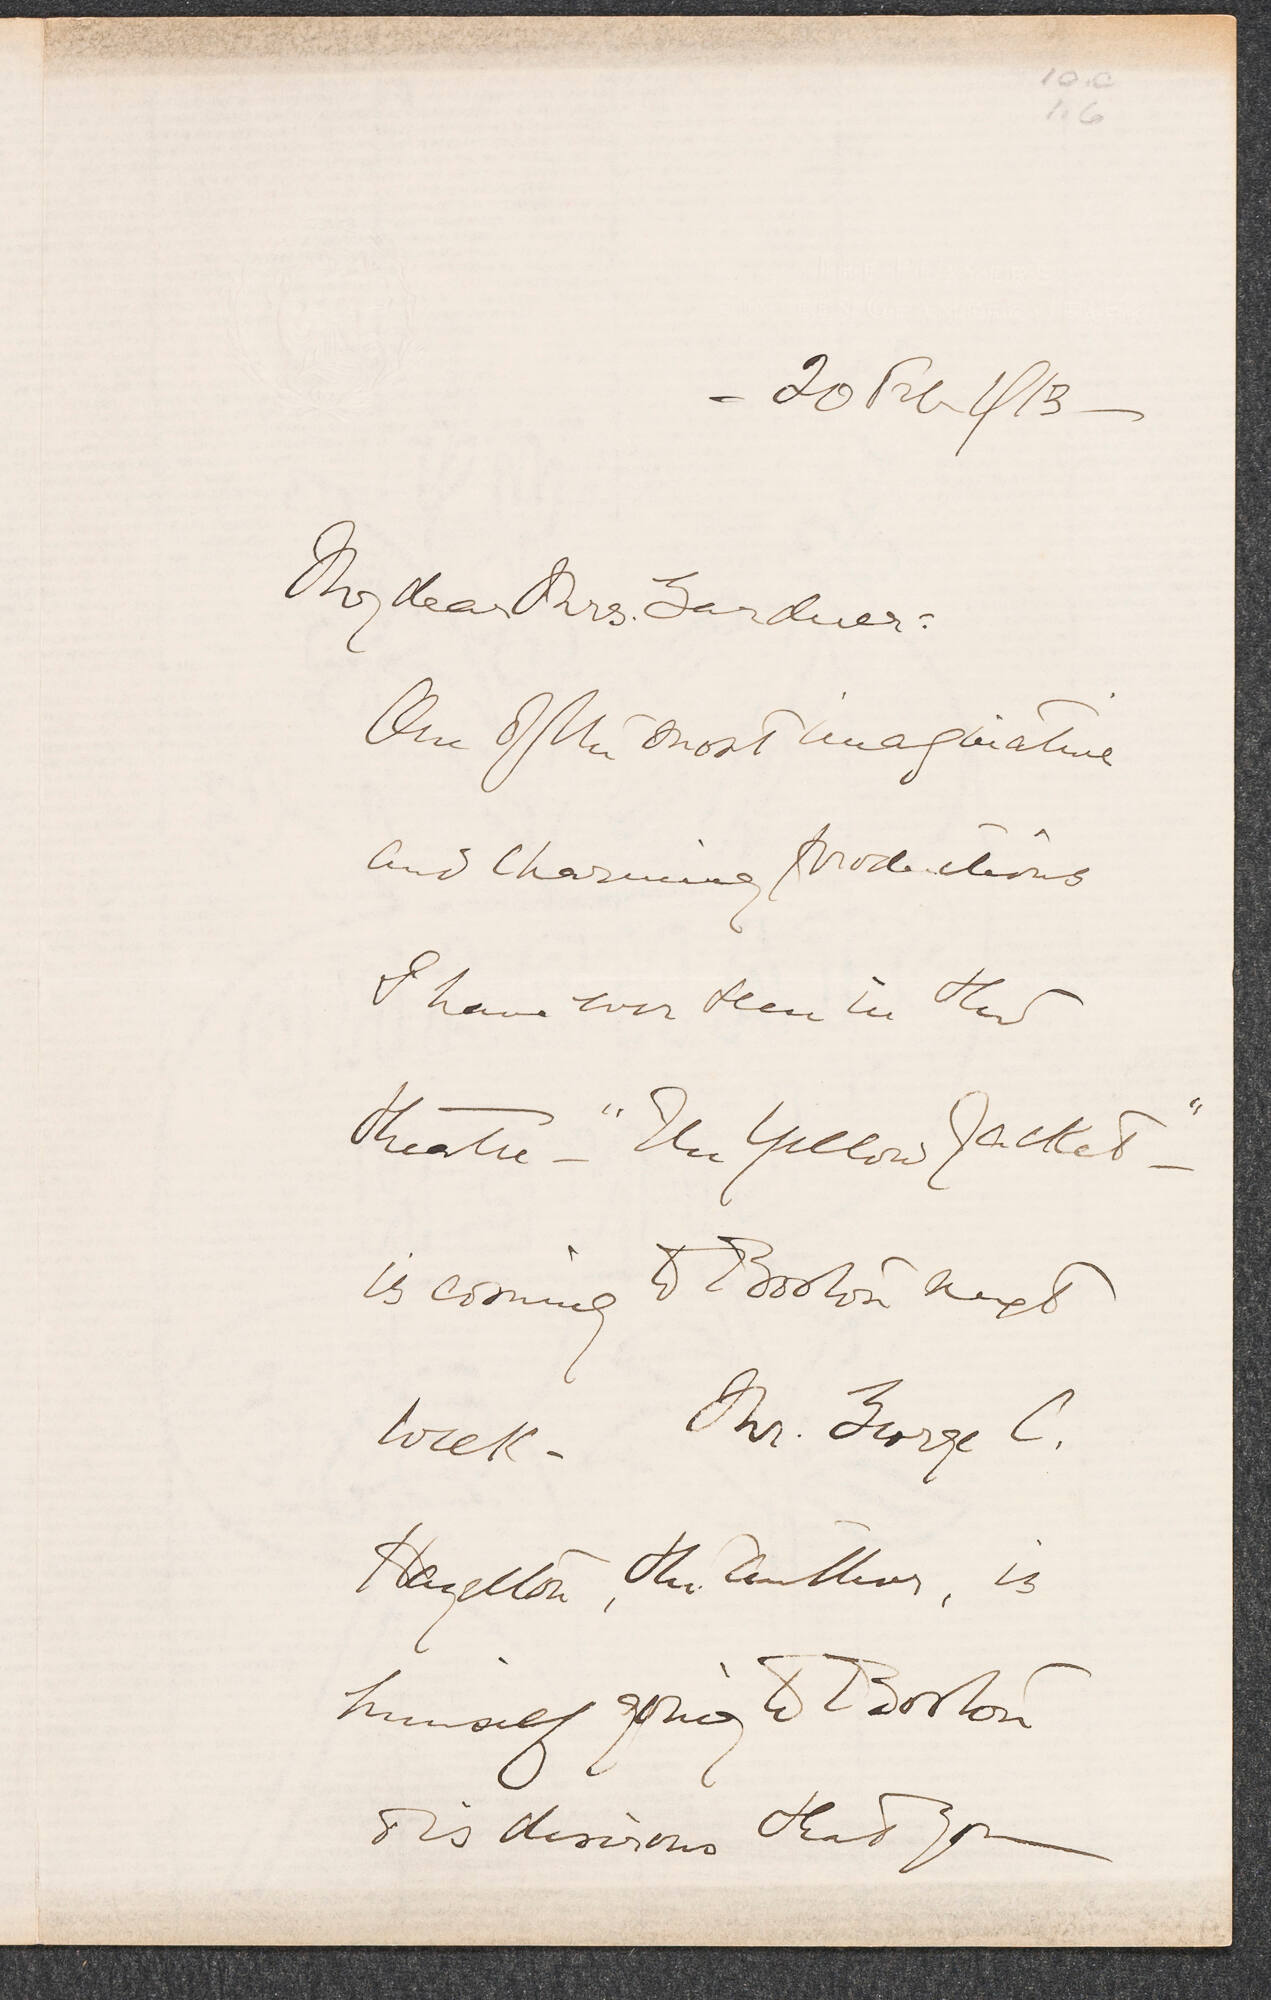 THE PLAYERS
- 20 Feb 1913 -
My dear Mrs. Gardner:
One of the most imaginative
and charming productions
I have ever seen in the
theatre - "The Yellow Jacket -"
is coming to Boston next
week - Mr. George C.
Hazelton, the author, is
himself going to Boston
& is desirous that you